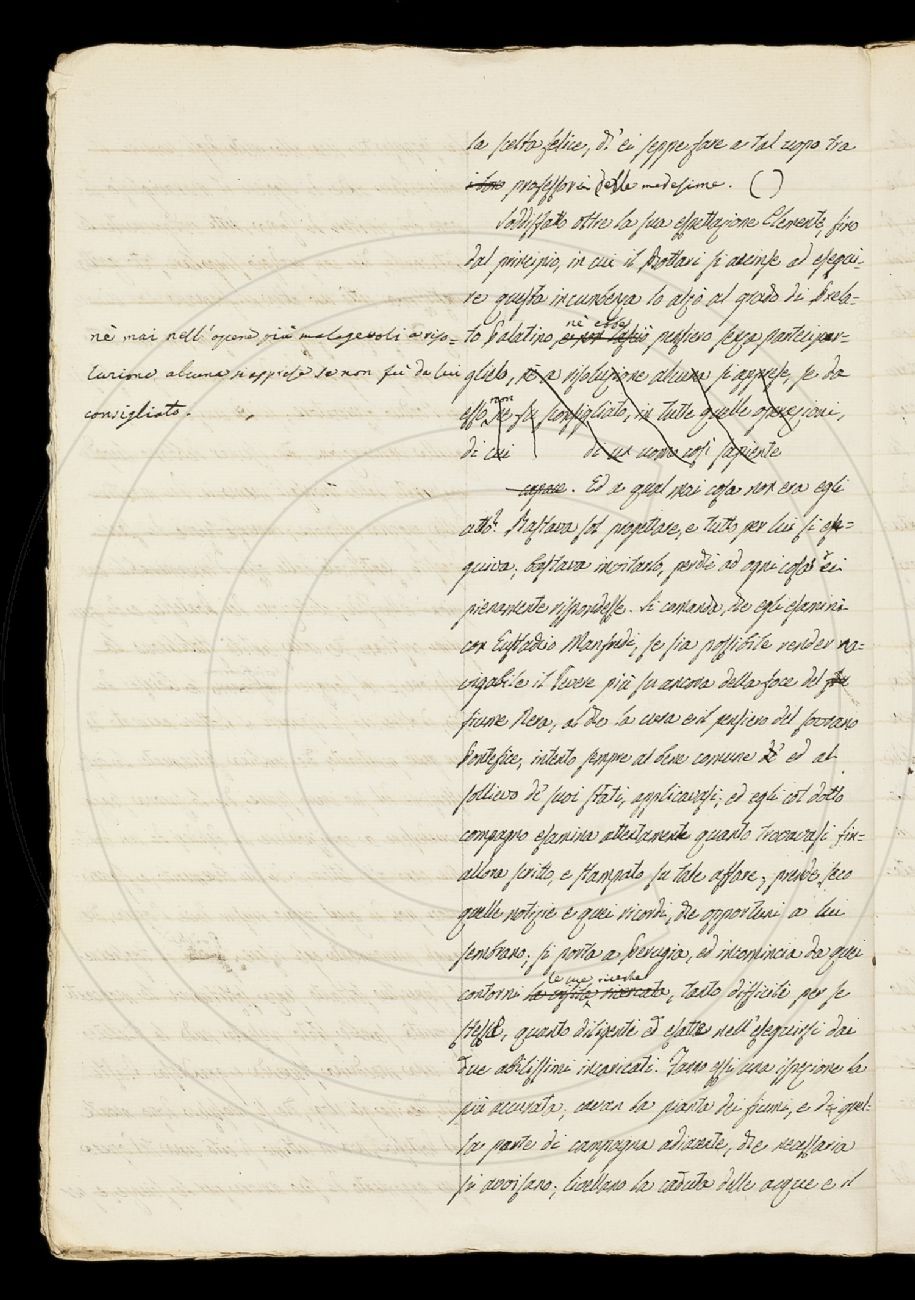 la scelta felice, ch' ei seppe fare a tal uopo tra
i loro professori delle medesime. ( )
Soddisfatto oltre la sua espettazione Clemente, fino
dal principio, in cui il Bottari si accinse ad esegui-
re questa incumbenza lo alzò al grado di Prela-
nè ebbe
to Palatino, pensiero senza partecipar-
glielo, nè a risoluzione alcuna si apprese, se da
non
esso ne fu consigliato, in tutte quelle operazioni,
di cui di un uomo così sapiente
capace. Ed a qual mai cosa non era egli
atto? Bastava sol progettare, e tutto per lui si ese-
guiva; bastava invitarlo, perchè ad ogni cosa ei
pienamente rispondesse. Si comanda, che egli esamini
con Eustachio Manfredi, se sia possibile render na-
vigabile il Tevere più su ancora della foce del
fiume Nera, al che la cura e il pensiero del sovrano
Pontefice, intento sempre al bene comune ed al
sollievo de' suoi stati, applicavasi; ed egli col dotto
compagno esamina attentamente quanto trovavasi fin-
allora scritto, e stampato su tale affare; prende seco
quelle notizie e quei ricordi, che opportuni a lui
sembrano; si porta a Perugia, ed incomincia da quei
le sue ricerche
contorni la visita ricercata, tanto difficile per se
stesse, quanto diligenti ed esatte nell' eseguirsi dai
due abilissimi incaricati. Fanno essi una ispezione la
più accurata; cavan la pianta dei fiumi, e di quel-
la parte di campagna adiacente, che necessaria
si avvisano; livellano la caduta delle acque e il
nè mai nell' opere più malagevoli a riso-
luzione alcuna s'apprese se non fù da lui
consigliato.